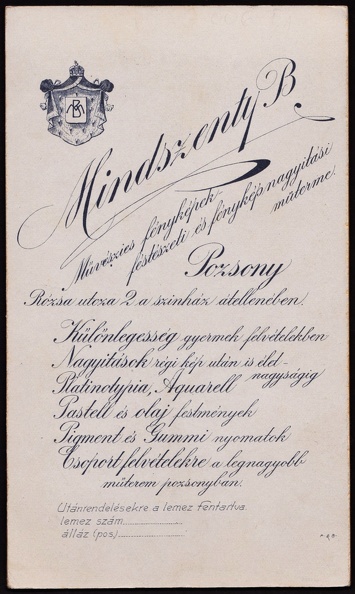 MB
Mindszenty B
Művészies fényképek
festészeti és fényképnagyitási
műterme.
Pozsony
Rózsa utcza 2 a szinház átellenében.
Különlegesség gyermek felvételekben
Nagyitások régi kép után is élet-
nagyságig
Platinotypia, Aquarell
Pastell és olaj festmények
Pigment és Gummi nyomatok
Csoportfelvételekre a legnagyobb
műterem pozsonyban.
Utánrendelésekre a lemez fentartva
lemez szám
álláz (pos)